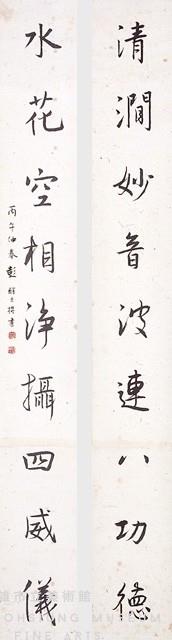 清澗妙音波連八功德
水花空相淨攝四威儀
丙午仲春彭
術館
OHSIUNG MUSEUM
FINE ARTS